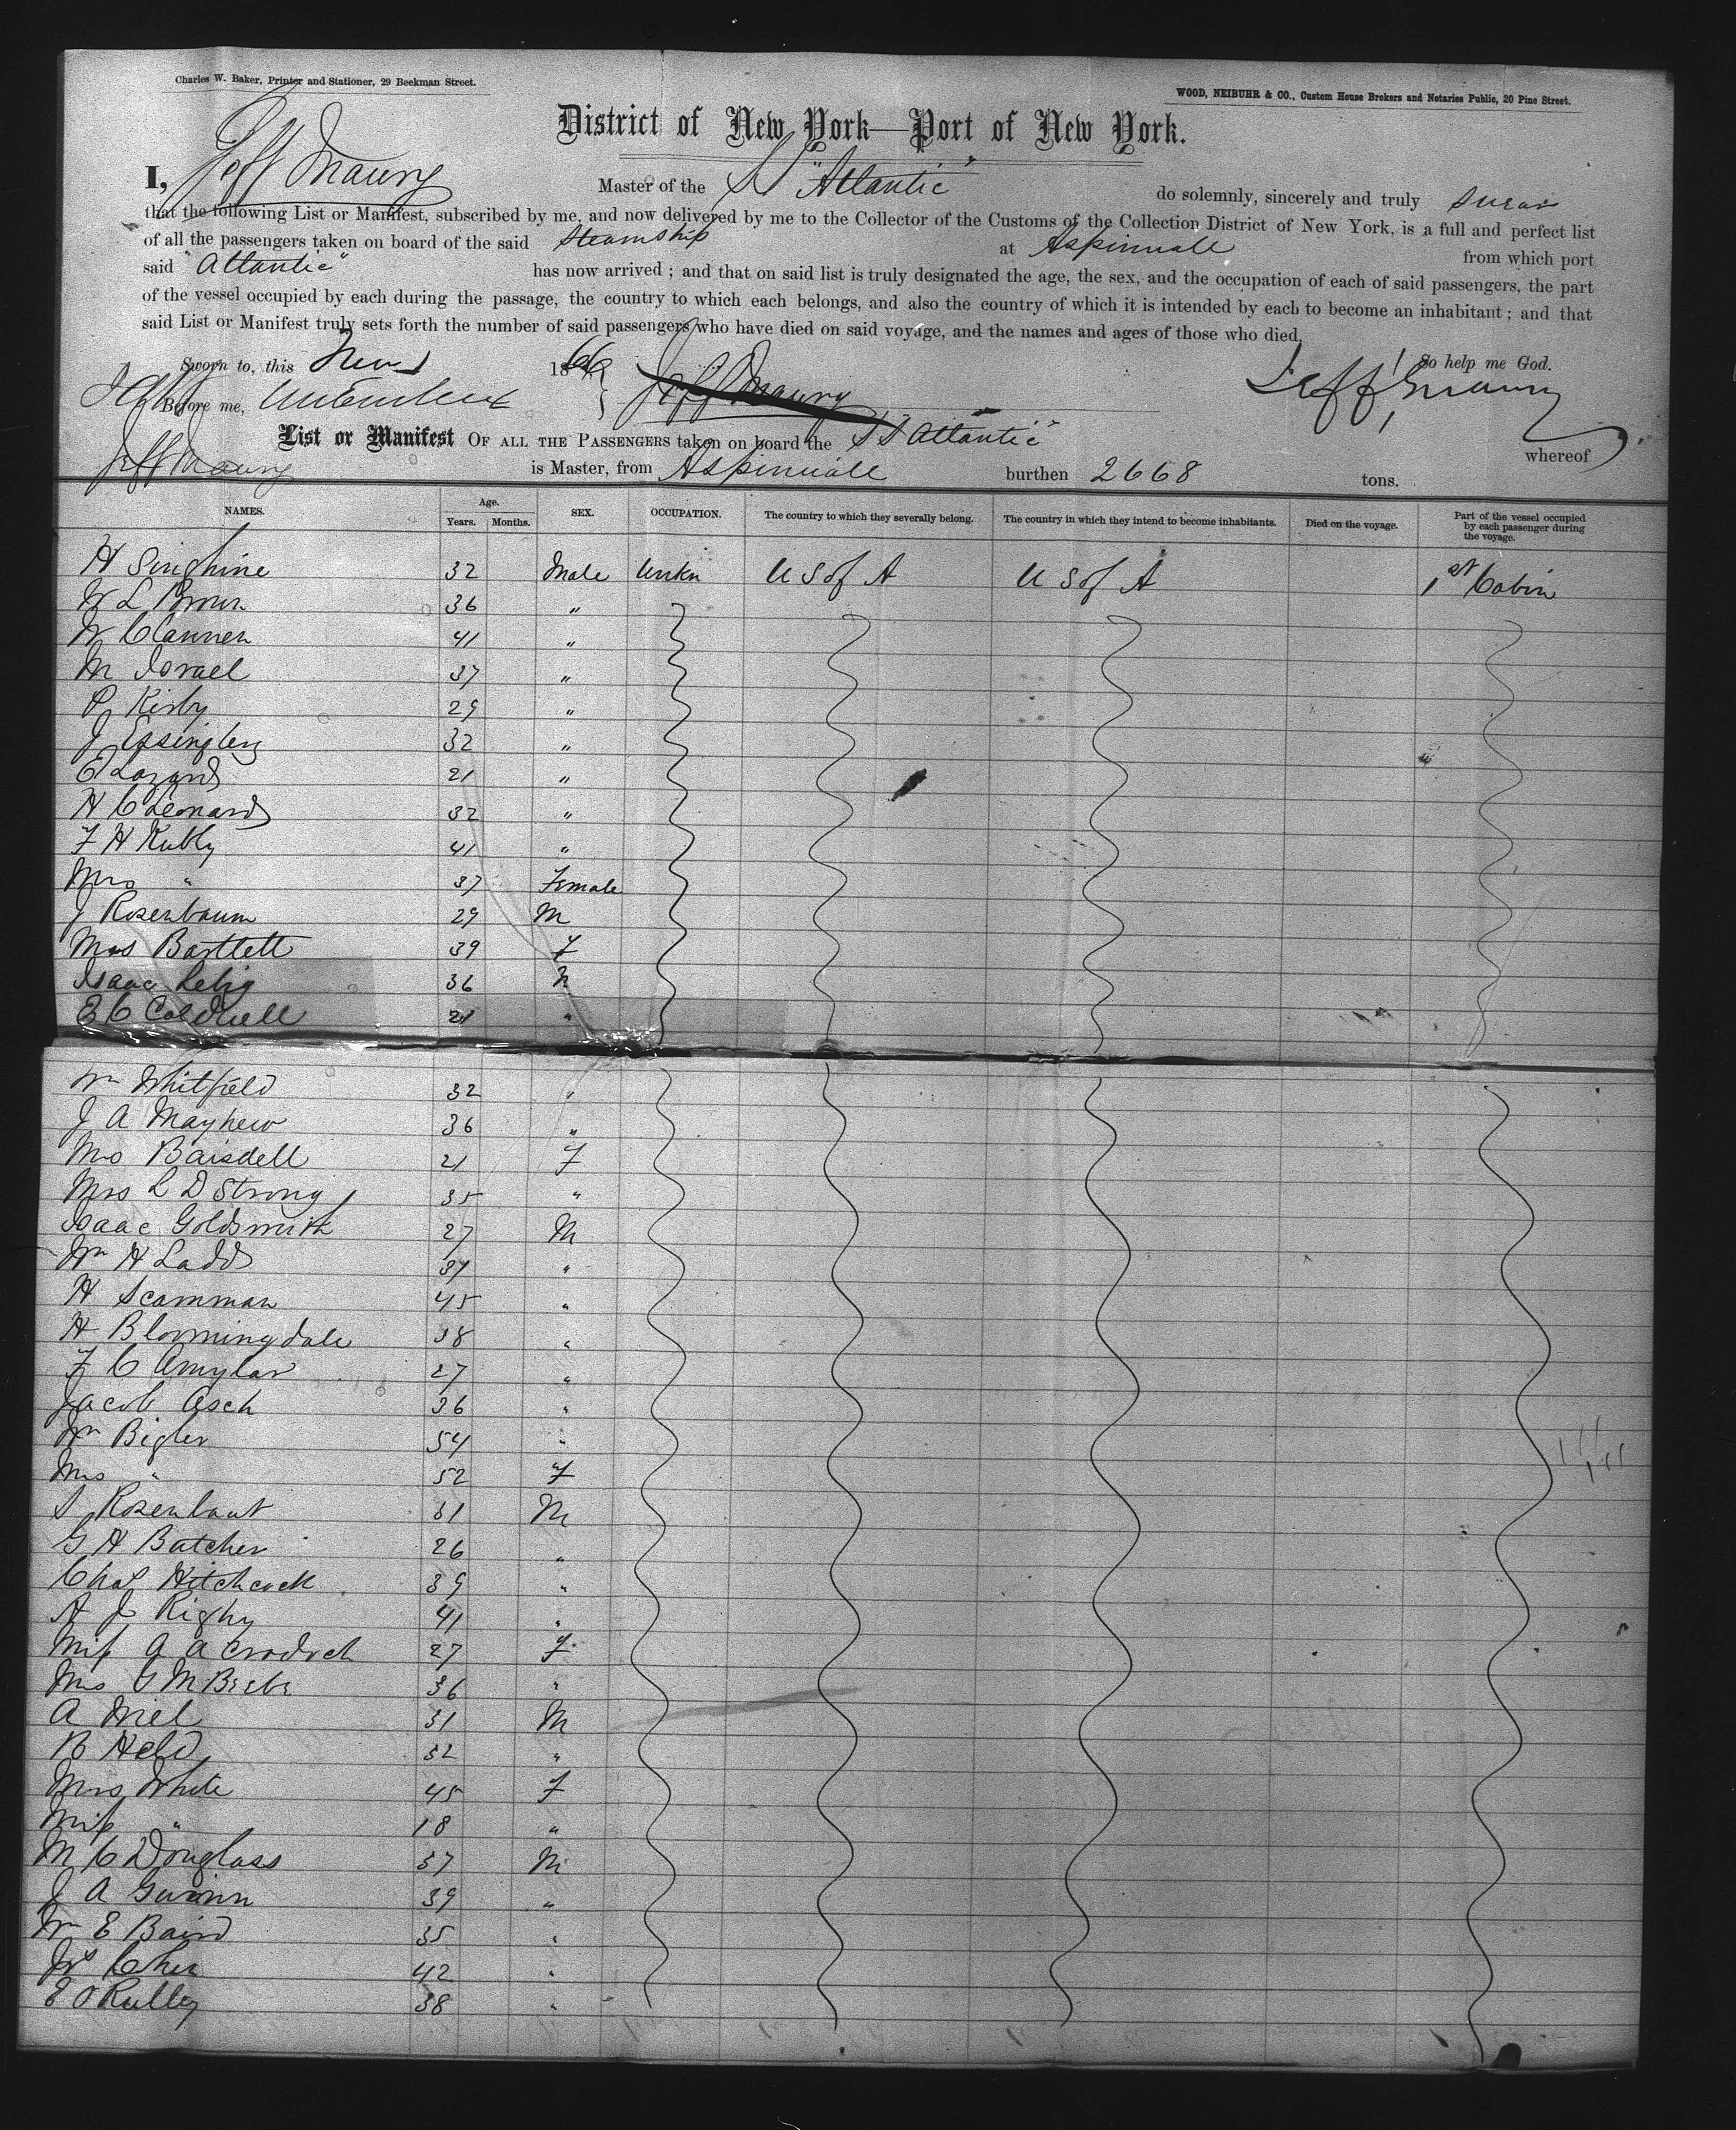 Charles W. Baker, Printer and Stationer, 29 Beekman Street.
WOOD, NEIBUHR & CO., Custom House Brokers and Notaries Public, 20 Pine Street.
District of New York—Port of New York.
I, Jeff Maury Master of the SS "Atlantic" do solemnly, sincerely and truly swear
that the following List or Manifest, subscribed by me, and now delivered by me to the Collector of the Customs of the Collection District of New York, is a full and perfect list
of all the passengers taken on board of the said Steamship at Aspinwall from which port
said "Atlantic" has now arrived ; and that on said list is truly designated the age, the sex, and the occupation of each of said passengers, the part
of the vessel occupied by each during the passage, the country to which each belongs, and also the country of which it is intended by each to become an inhabitant ; and that
said List or Manifest truly sets forth the number of said passengers who have died on said voyage, and the names and ages of those who died.
Sworn to, this 1866 Jeff Maury So help me God.
Before me, Jeff Maury
List or Manifest OF ALL THE PASSENGERS taken on board the SS Atlantic" whereof
Jeff Maury is Master, from Aspinwall burthen 2668 tons.
NAMES. Age. Years. Months. SEX. OCCUPATION. The country to which they severally belong. The country in which they intend to become inhabitants. Died on the voyage. Part of the vessel occupied by each passenger during the voyage.
H Singhine 32 Male Unkn U S of A U S of A 1st Cabin
W L Brown 36 "
W C Canner 41 "
M Israel 37 "
P Kirby 29 "
J 32 "
E Lazard 21 "
H C Leonard 32 "
F H Kubly 41 "
Mrs " 37 Female
J Rosenbaum 29 M
Mrs Bartlett 39 F
Isaac Lebig 36 M
E C Caldwell 21 "
Wm Whitfield 32 "
J A Mayhew 36 "
Mrs Baisdell 21 F
Mrs L D Strong 35 "
Isaac Goldsmith 27 M
Wm H Ladd 37 "
H Scamman 45 "
H Bloomingdale 38 "
F C 27 "
Jacob Asch 36 "
Wm Bigler 54 "
Mrs " 52 F
S Rosenbaut 31 M
G H Batcher 26 "
Chas Hitchcock 39 "
A J Rigby 41 "
Miss A A 27 F
Mrs M Beebe 36 "
A Niel 31 M
B Held 32 "
Mrs White 45 F
Miss " 18 "
M C Douglass 37 M
J A Gwinn 39 "
Wm E Baird 35 "
42 "
E O Rulley 38 "